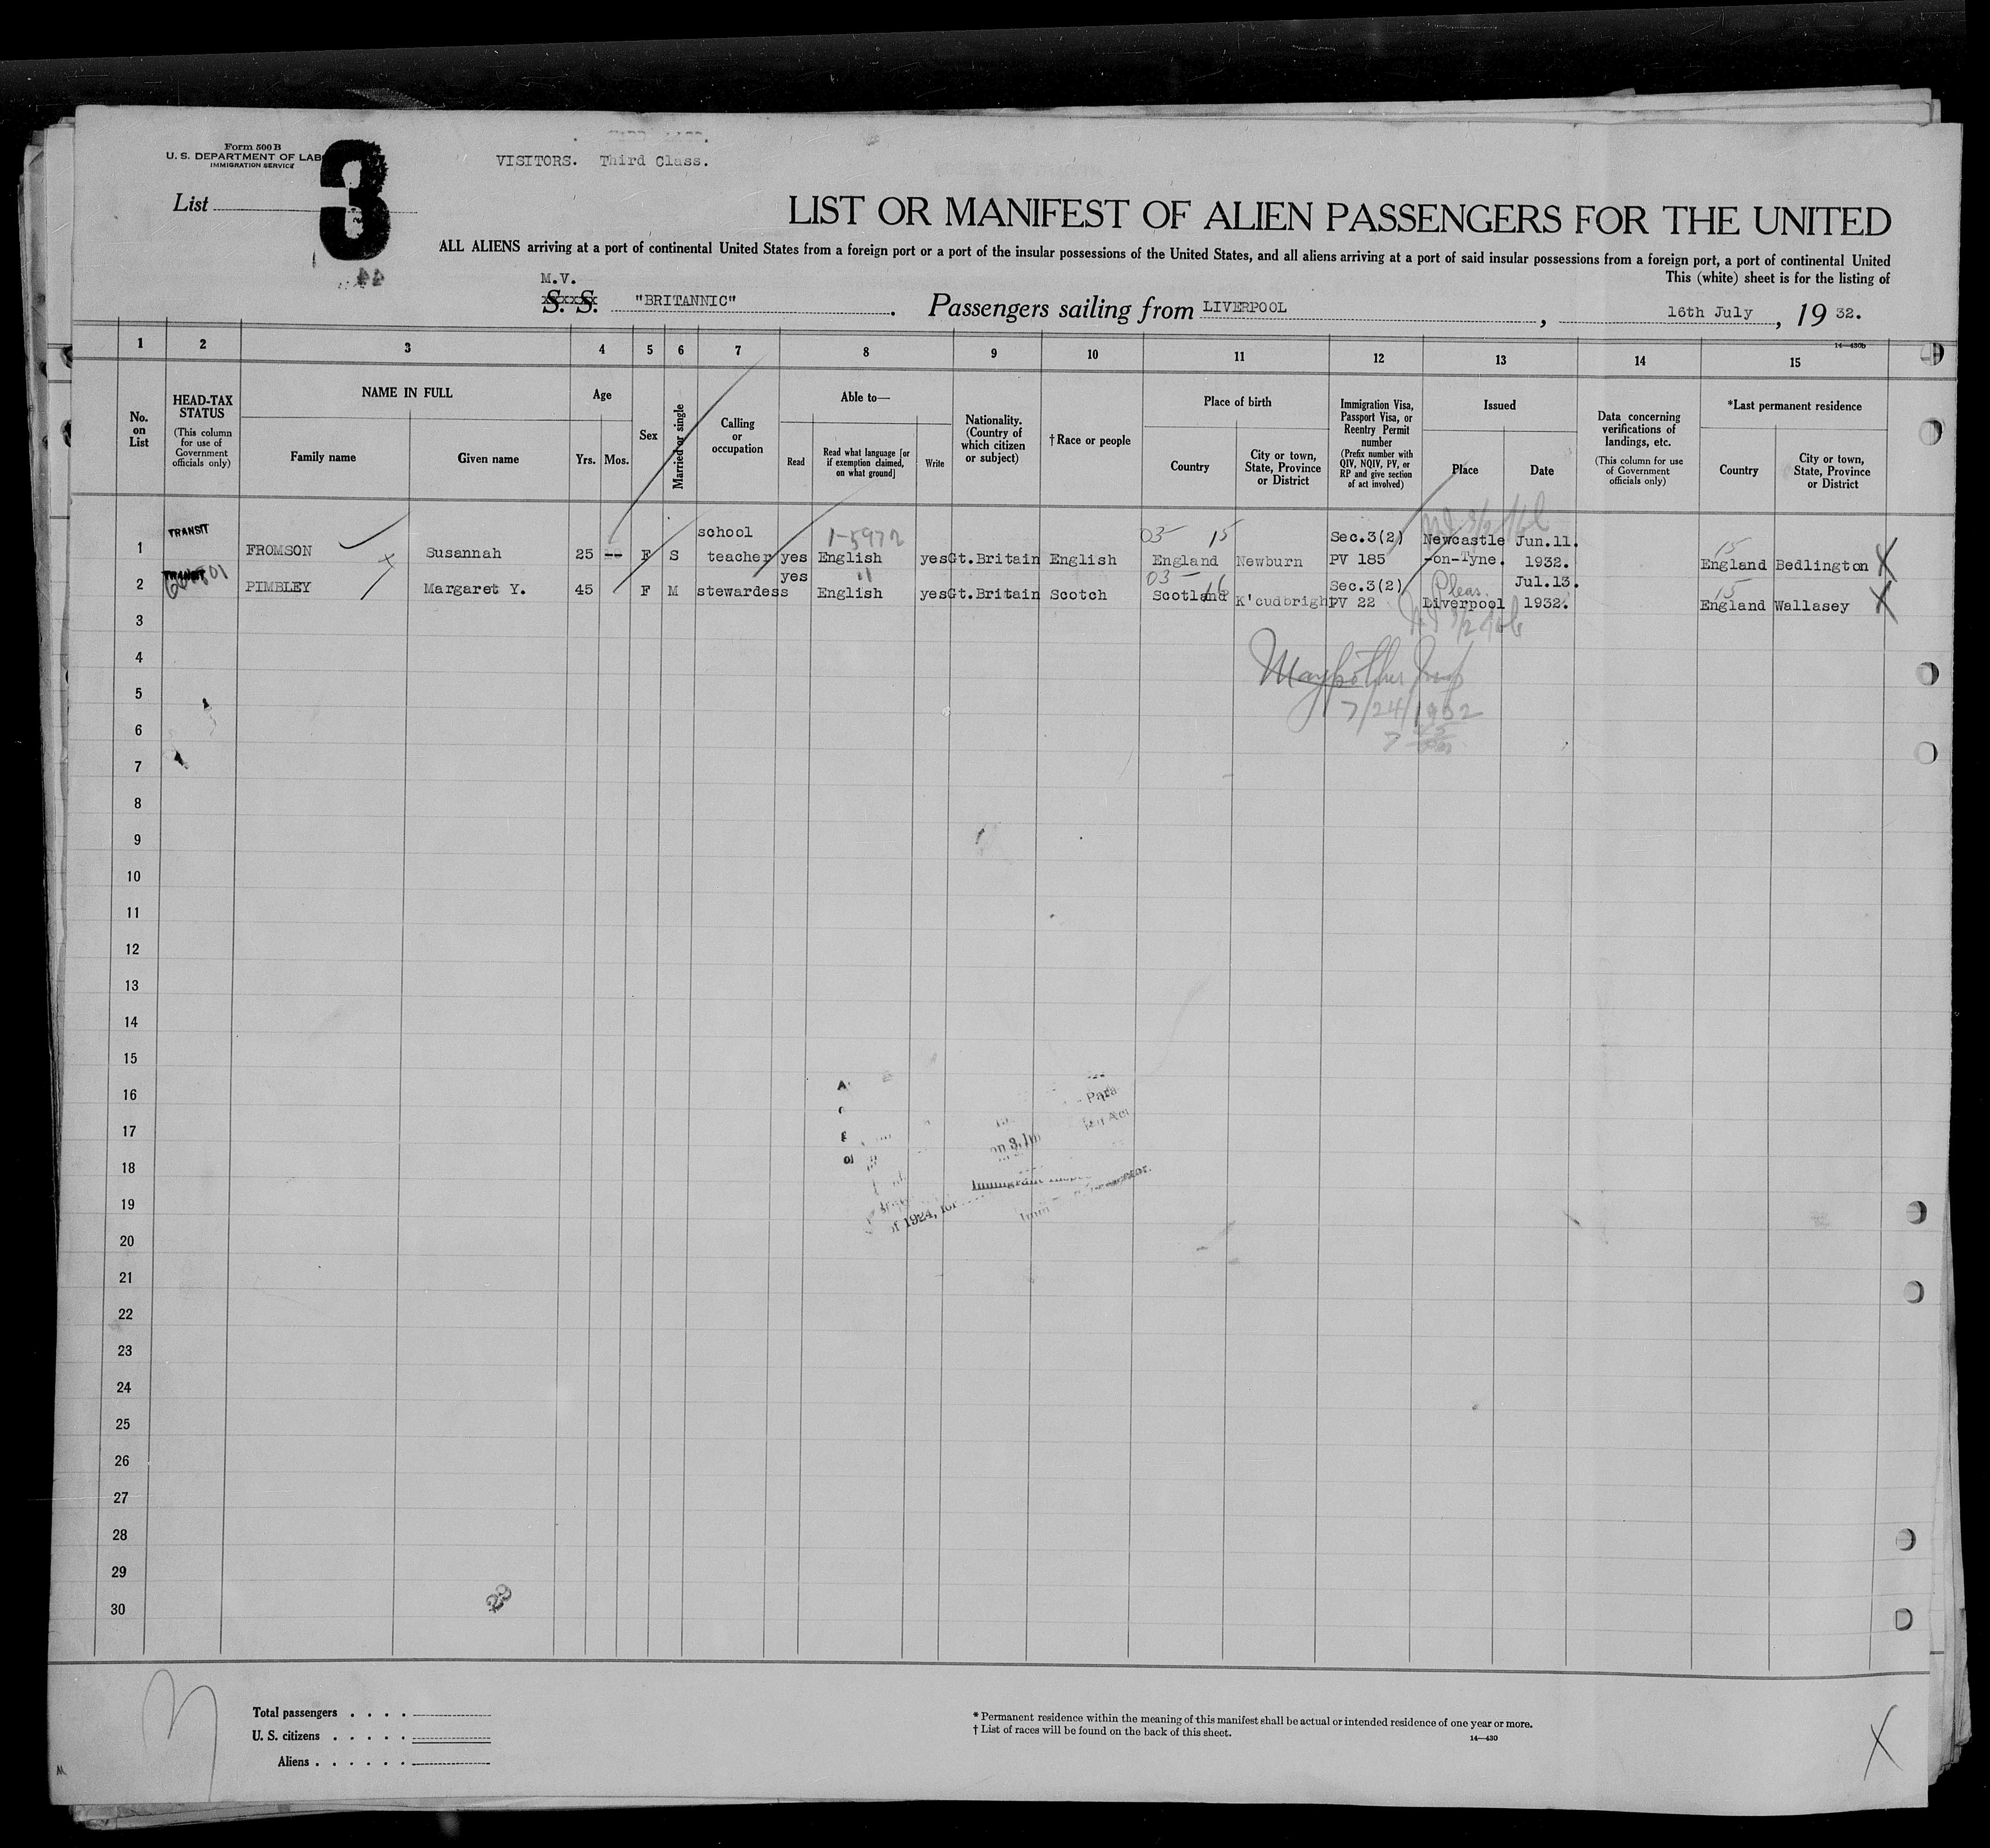 Form 500 B
U. S. DEPARTMENT OF LAB
IMMIGRATION SERVICE
3
VISITORS. Third Class.
List
LIST OR MANIFEST OF ALIEN PASSENGERS FOR THE UNITED
ALL ALIENS arriving at a port of continental United States from a foreign port or a port of the insular possessions of the United States, and all aliens arriving at a port of said insular possessions from a foreign port, a port of continental United
This (white) sheet is for the listing of
M.V.
S. S. "BRITANNIC". Passengers sailing from LIVERPOOL, 16th July, 19 32.
14—430b
1 2 3 4 5 6 7 8 9 10 11 12 13 14 15
No. on List
HEAD-TAX STATUS
(This column for use of Government officials only)
NAME IN FULL
Family name Given name
Age
Yrs. Mos.
Sex
Married or single
Calling or occupation
Able to—
Read
Read what language [or if exemption claimed, on what ground]
Write
Nationality. (Country of which citizen or subject)
†Race or people
Place of birth
Country
City or town, State, Province or District
Immigration Visa, Passport Visa, or Reentry Permit number
(Prefix number with QIV, NQIV, PV, or RP and give section of act involved)
Issued
Place Date
Data concerning verifications of landings, etc.
(This column for use of Government officials only)
*Last permanent residence
Country
City or town, State, Province or District
TRANSIT
1-5972
03- 15
15
1 FROMSON Susannah 25 -- F S school teacher yes English yes Gt.Britain English England Newburn Sec.3(2) PV 185 Newcastle -on-Tyne. Jun.11. 1932. England Bedlington X
TRANSIT
11
03- 16
Pleas.
15
2 PIMBLEY Margaret Y. 45 F M stewardess yes English yes Gt.Britain Scotch Scotland K'cudbright Sec.3(2) PV 22 Liverpool Jul.13. 1932. England Wallasey X
3
4
7/24/1932
5
6
7
8
9
10
11
12
13
14
15
16
17
18
19
of 1924, for
20
21
22
23
24
25
26
27
28
29
30
23
Total passengers
U. S. citizens
Aliens
* Permanent residence within the meaning of this manifest shall be actual or intended residence of one year or more.
† List of races will be found on the back of this sheet.
14—430
X